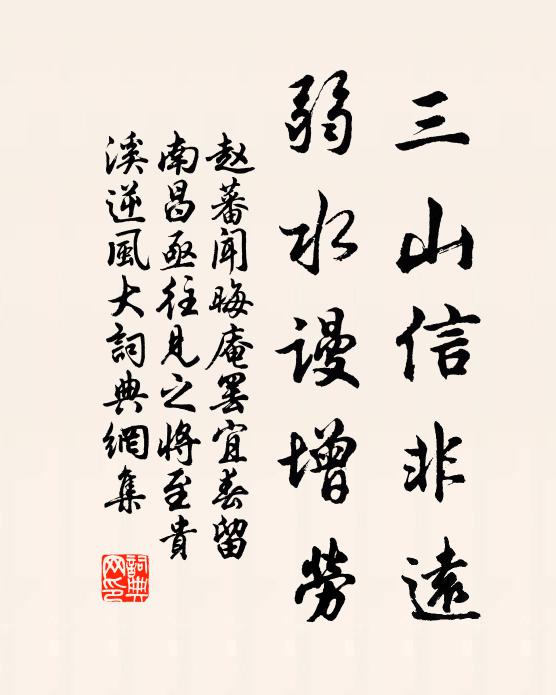 三山信非遠
弱水謾增勞
赵蕃聞晦庵罢宜春留
南昌亟往見之將至貴
溪逆風大詞典網集
詞典
网印